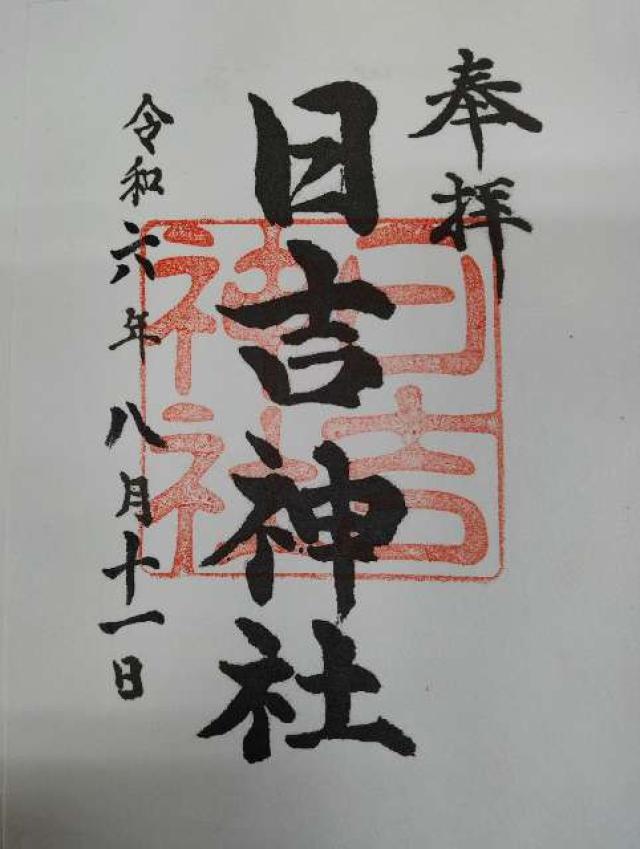 奉拝
日吉神社
令和六年八月十一日
日吉
神社